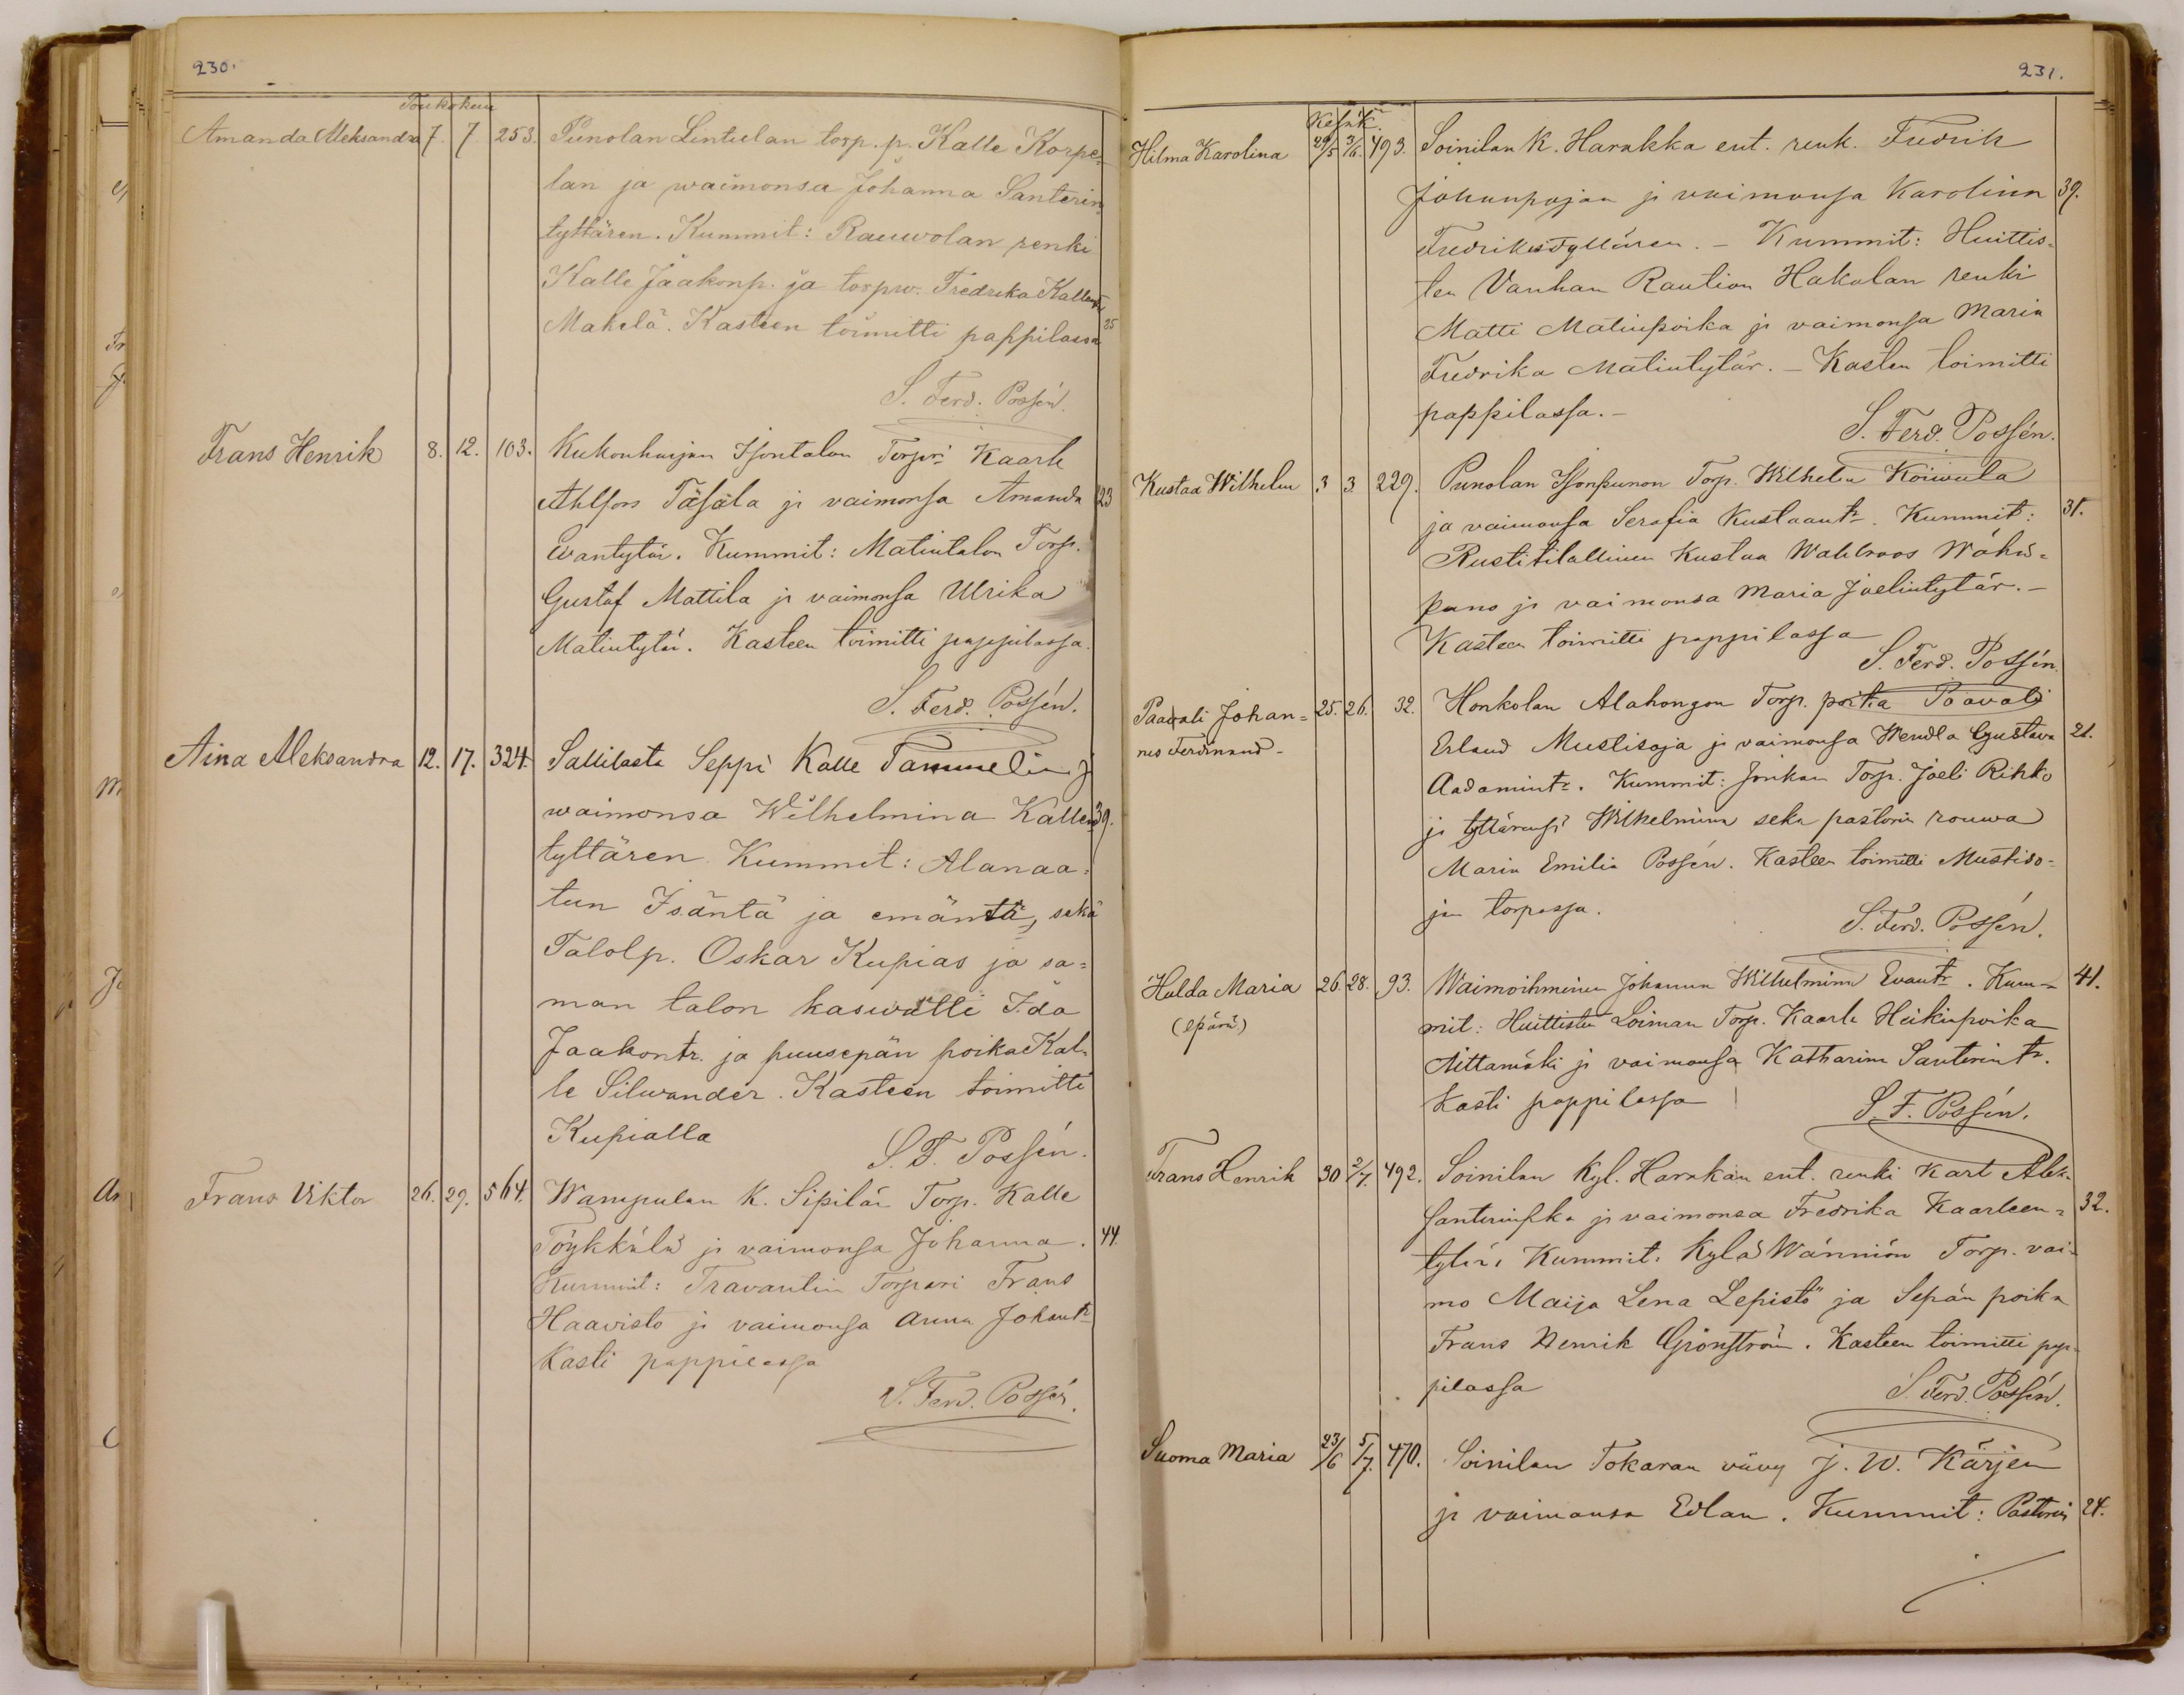 230.
Toukokuu
Amanda Aleksandra 7. 7. 253. Punolan Lintulan torp. p. Kalle Korpe-
lan ja waimonsa Johanna Santerin
tyttären. Kummit: Rauwolan renki
Kalle Jaakonp. ja torpw. Fredrika Kallentr
Makelä. Kasteen toimitti pappilassa 25
S. Ferd. Possén.
Frans Henrik 8. 12. 103. Kukonharjan Isontalon Torpri Kaarle
Ahlfors Täsälä ja vaimonsa Amanda 23
Evantytär. Kummit: Matintalon Torp.
Gustaf Mattila ja vaimonsa Ulrika
Matintytär. Kasteen toimitti pappilassa.
S. Ferd. Possén.
Aina Aleksandra 12. 17. 324. Sallilasta Seppä Kalle Tammelin ja
waimonsa Wilhelmina Kallen 39.
tyttären Kummit: Alanaa-
tun Isäntä ja emäntä, sekä
Talolp. Oskar Kupias ja sa-
man talon kaswatti Ida
Jaakontr. ja puusepän poika Kal-
le Silwander. Kasteen toimitti
Kupialla
S. F. Possén.
Frans Viktor 26. 29. 564. Wampulan K. Sipilän Torp. Kalle
Töykkälä ja vaimonsa Johanna. 44.
Kummit: Travantin Torpari Frans
Haavisto ja vaimonsa Anna Johantr
Kasti pappilassa
S. Ferd. Possén.
231.
Kesäk.
Hilma Karolina 29/5 3/6. 493. Soinilan K. Harakka ent. renk. Fredrik
Johanpojan ja vaimonsa Karolina 39.
Fredrikintyttären. - Kummit: Huittis-
ten Vanhan Raution Hakalan renki
Matti Matinpoika ja vaimonsa Maria
Fredrika Matintytär. - Kasten toimitti
pappilassa. -
S. Ferd. Possén.
Kustaa Wilhelm 3 3. 229. Punolan Isonpunon Torp. Wilhelm Koiwula
ja vaimonsa Serafia Kustaantr. Kummit: 31.
Rustitilallinen Kustaa Wahlroos Wähä-
puno ja vaimonsa Maria Joelintytär. -
Kasteen toimitti pappilassa
S. Ferd. Possén.
Paavali Johan- 25. 26. 32. Honkolan Alahongon Torp. poika Paavali
nes Ferdinand - Erland Mustisoja ja vaimonsa Wendla Gustava 21.
Aadamintr. Kummit: Jonkan Torp. Joeli Rihko
ja tyttärensä Wilhelmina seka pastorin rouwa
Maria Emilia Possén. Kasteen toimitti Mustiso-
jan torpassa.
S. Ferd. Possén.
Hulda Maria 26. 28. 93. Waimoihminen Johanna Wilhelmina Evantr. Kum- 41.
(epärä) mit: Huittisten Loiman Torp. Kaarle Heikinpoika
Aittamäki ja vaimonsa Katharina Santerintr.
Kasti pappilassa
S. F. Possén.
Frans Henrik 30 2/7. 492. Soinilan Kyl. Harakan ent. renki Karl Alek-
santerinpka ja vaimonsa Fredrika Kaarleen- 32.
tytär, Kummit. Kylä Wännion Torp. vai-
mo Maija Lena Lepistö ja Sepän poika
Frans Henrik Grönström. Kasteen toimitti pap-
pilassa
S. Ferd. Possén.
Suoma Maria 23/6 5/7. 470. Soinilan Tokaran vävy J. W. Kärjen
ja vaimonsa Edlan. Kummit: Pastorin 24.